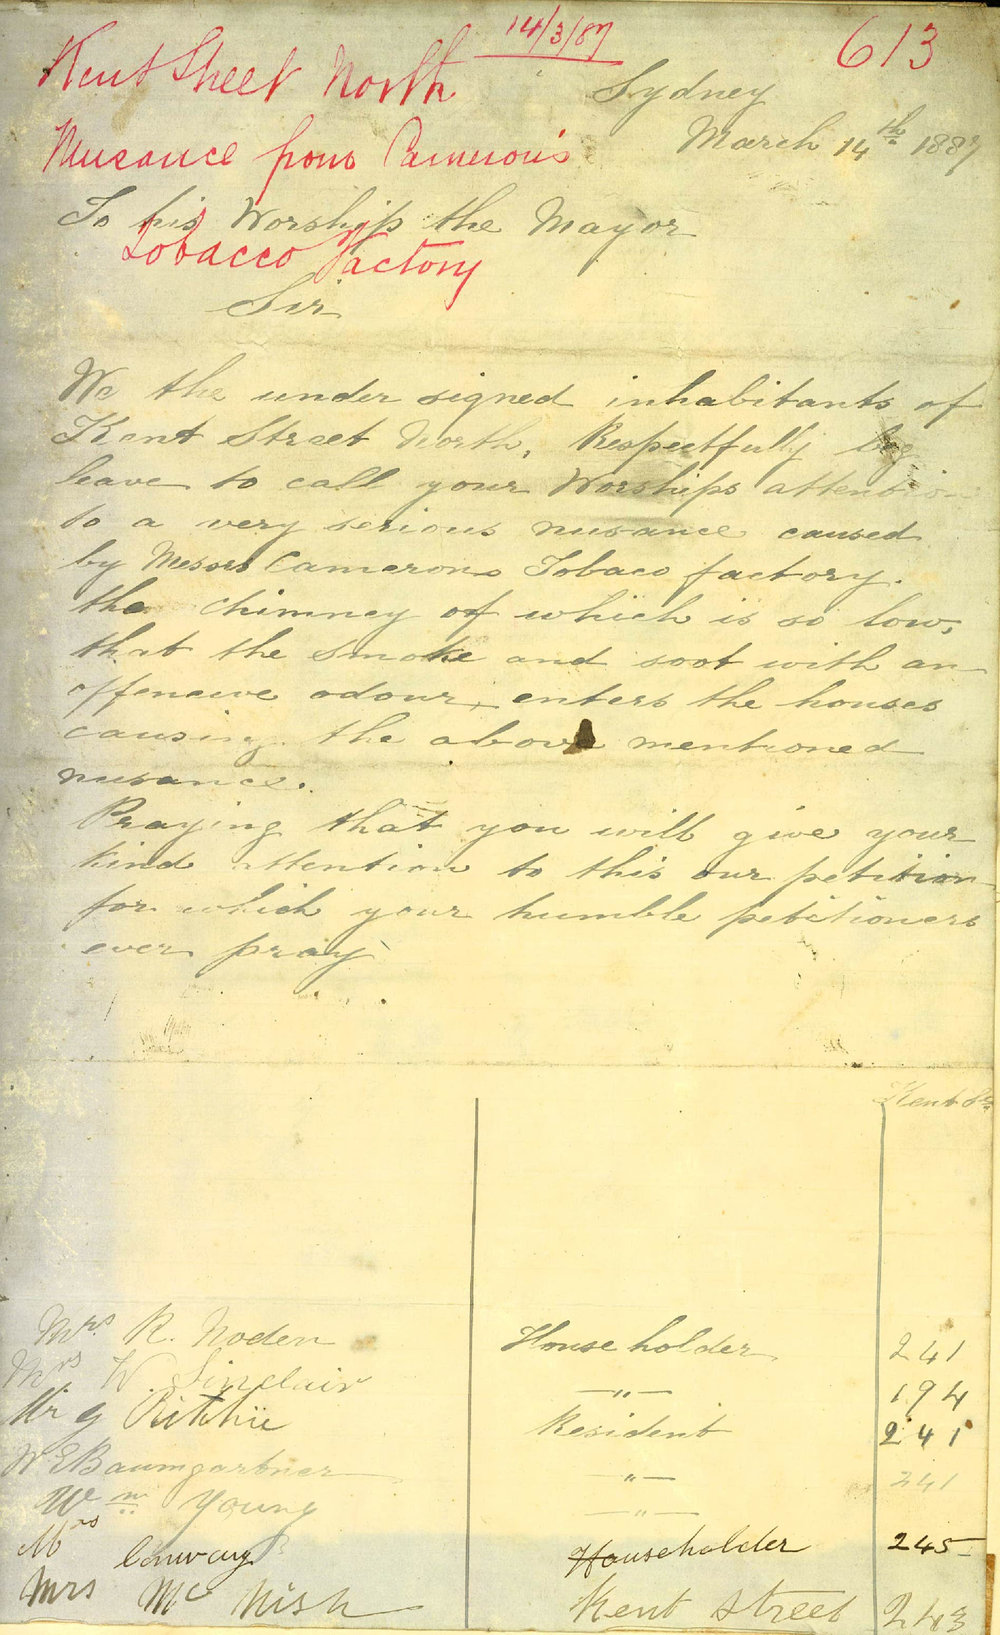 14/3/87
613
Kent Street North
Sydney
March 14th 1887
Nusance from Cameron's
To his Worship the Mayor
Tobacco Factory
Sir
We the under signed inhabitants of
Kent Street North, Respectfully beg
leave to call your Worships attention
to a very serious nusance caused
by Messrs Camerons Tobaco factory.
the chimney of which is so low,
that the smoke and soot with an
offencive odour, enters the houses
causing the above mentioned
nusance.
Praying that you will give your
kind attention to this our petition
for which your humble petitioners
ever pray
Kent St
Mrs. R. Noden House holder 241
Mrs W. Sinclair —"— 194
Mr G Ritchie Resident 241
W E Baumgartner —"— 241
Wm Young —"—
Mrs Conway Householder 245
Mrs Mc Nish Kent street 243